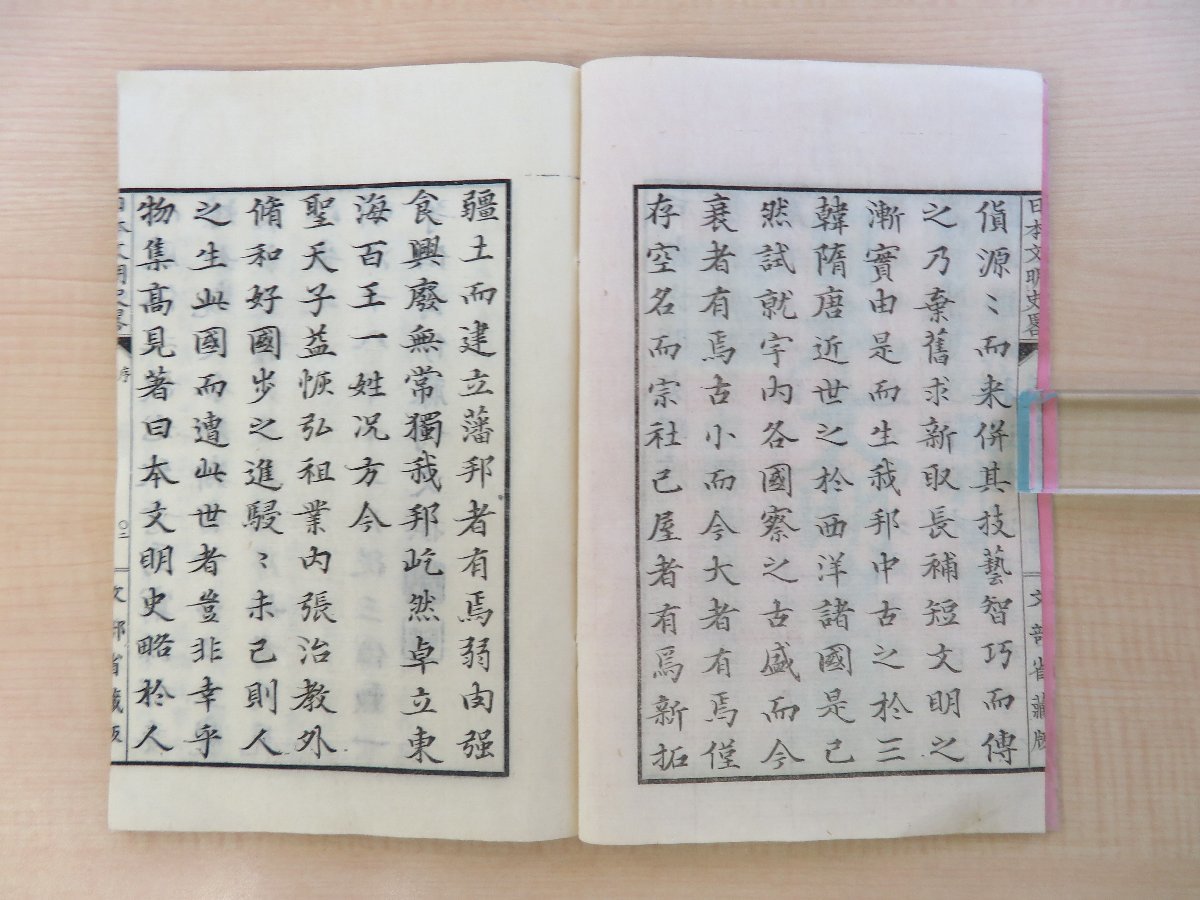 日本文明史畧
文部省蔵版
偩源〻而来併其技藝智巧而傳
之乃棄舊求新取長補短文明之
漸實由是而生我邦中古之於三
韓隋唐近世之於西洋諸國是已
然試就宇内各國察之古盛而今
衰者有焉古小而今大者有焉僅
存空名而宗社已屋者有焉新拓
疆土而建立藩邦者有焉弱肉强
食興廢無常獨我邦屹然卓立東
海百王一姓况方今
聖天子益恢弘祖業内張治教外
脩和好國步之進駸〻未已則人
之生此國而遭此世者豈非幸乎
物集高見著日本文明史略於人
日本文明史畧
序
〇二
文部省蔵版